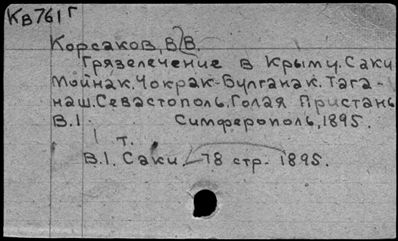 КВ761Г
Корсаков, В.В.
Грязелечение в Крыму. Саки
Мойнак. Чокрак-Булганак. Тага-
наш. Севастополь. Голая Пристань
В.1 Симферополь, 1895.
1 т.
В.1. Саки. 78 стр. 1895.